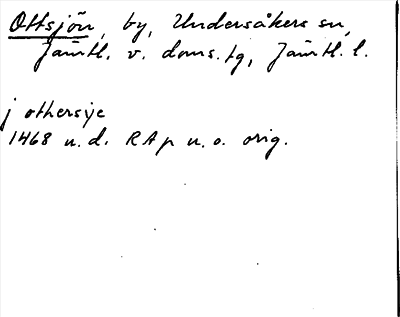 Ottsjön, by, Undersåkers sn,
Jämtl. v. doms.tg, Jämtl. l.
j othersye
1468 u.d. RAp u.o. orig.